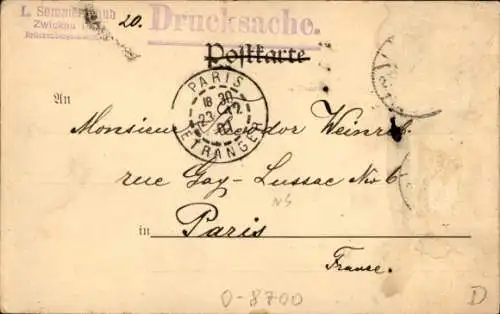 L. Sommer
Zwickau
20.
Drucksache.
Postkarte
PARIS
18 30
23 12
ETRANGER
An
Monsieur
rue Gay-Lussac No 6
in Paris
France.
0-8700
D